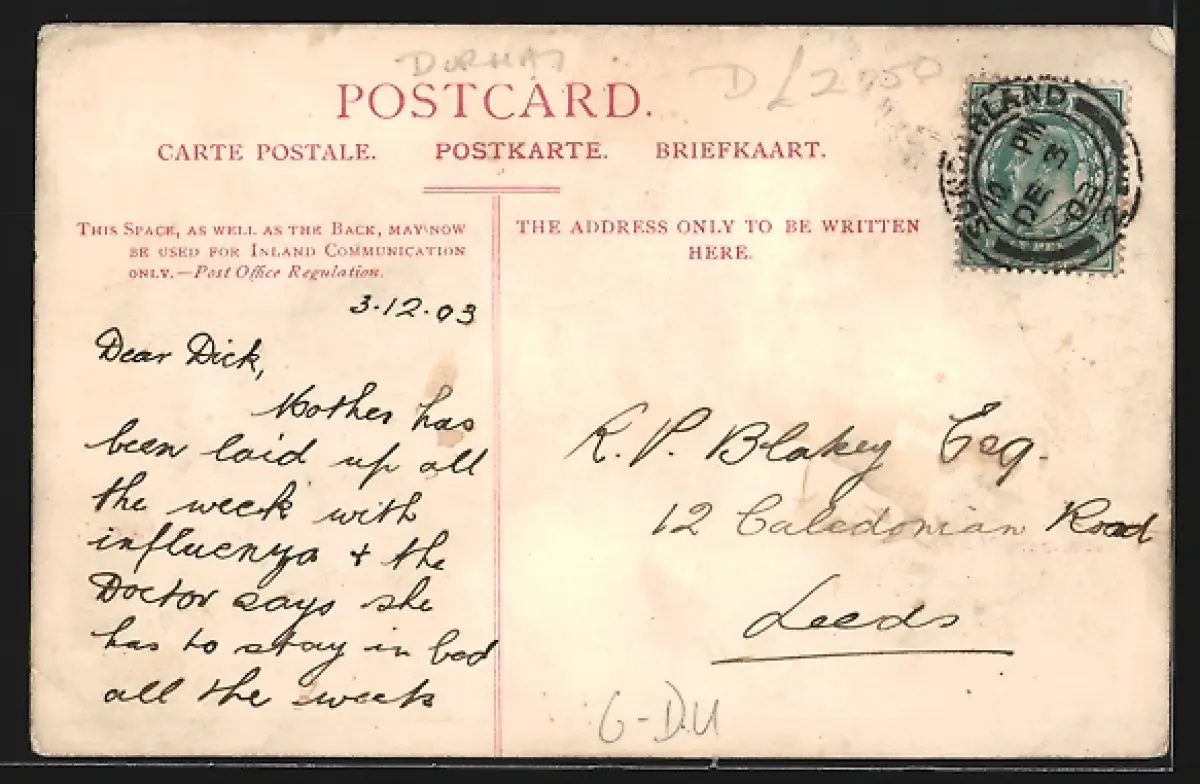 DURHAM
D £2 750
POSTCARD.
CARTE POSTALE. POSTKARTE. BRIEFKAART.
THIS SPACE, AS WELL AS THE BACK, MAY NOW
BE USED FOR INLAND COMMUNICATION
ONLY.—Post Office Regulation.
THE ADDRESS ONLY TO BE WRITTEN
HERE.
SUNDERLAND
PM
DE 3
03
2
3.12.03
Dear Dick,
Mother has
been laid up all
the week with
influenza + the
Doctor says she
has to stay in bed
all the week
R. P. Blakey Esq.
12 Caledonian Road
Leeds
G-DU